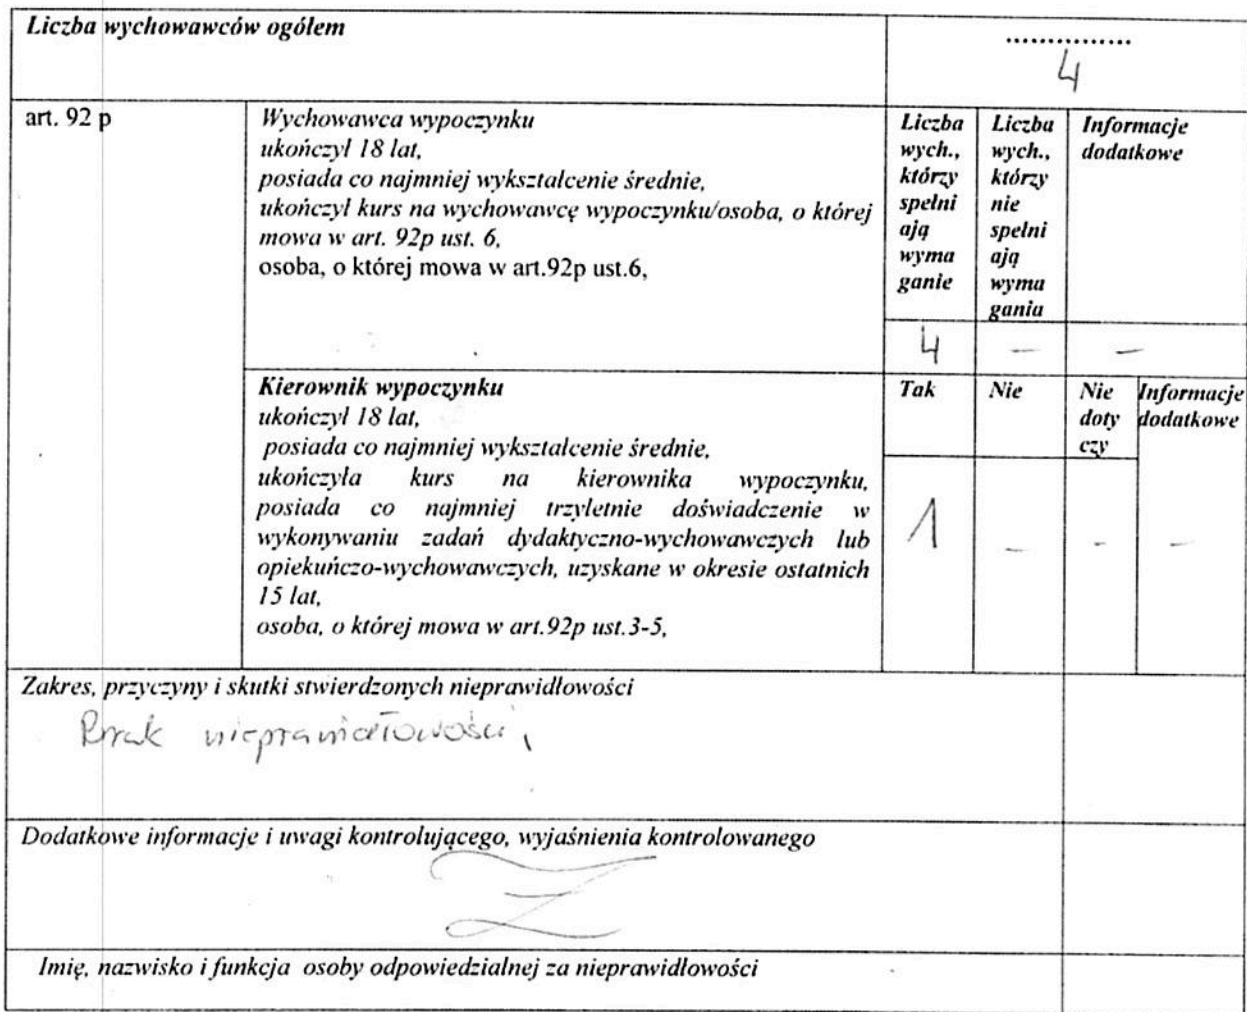 Liczba wychowawców ogółem
...............
4
art. 92 p
Wychowawca wypoczynku
ukończył 18 lat,
posiada co najmniej wykształcenie średnie,
ukończył kurs na wychowawcę wypoczynku/osoba, o której
mowa w art. 92p ust. 6,
osoba, o której mowa w art.92p ust.6,
Liczba
wych.,
którzy
spełni
ają
wyma
ganie
Liczba
wych.,
którzy
nie
spełni
ają
wyma
gania
Informacje
dodatkowe
4 – –
Kierownik wypoczynku
ukończył 18 lat,
posiada co najmniej wykształcenie średnie,
ukończyła kurs na kierownika wypoczynku,
posiada co najmniej trzyletnie doświadczenie w
wykonywaniu zadań dydaktyczno-wychowawczych lub
opiekuńczo-wychowawczych, uzyskane w okresie ostatnich
15 lat,
osoba, o której mowa w art.92p ust.3-5,
Tak
Nie
Nie
doty
czy
Informacje
dodatkowe
1 – – –
Zakres, przyczyny i skutki stwierdzonych nieprawidłowości
Brak nieprawidłowości,
Dodatkowe informacje i uwagi kontrolującego, wyjaśnienia kontrolowanego
Imię, nazwisko i funkcja osoby odpowiedzialnej za nieprawidłowości